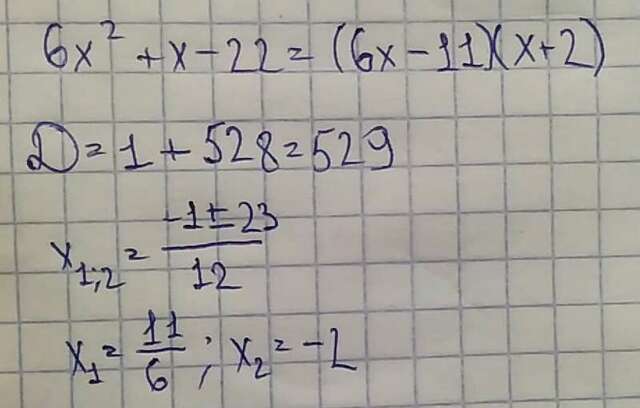 6x² + x - 22 = (6x - 11)(x + 2)
D = 1 + 528 = 529
x₁;₂ = (-1 ± 23)/12
x₁ = 11/6 ; x₂ = -2